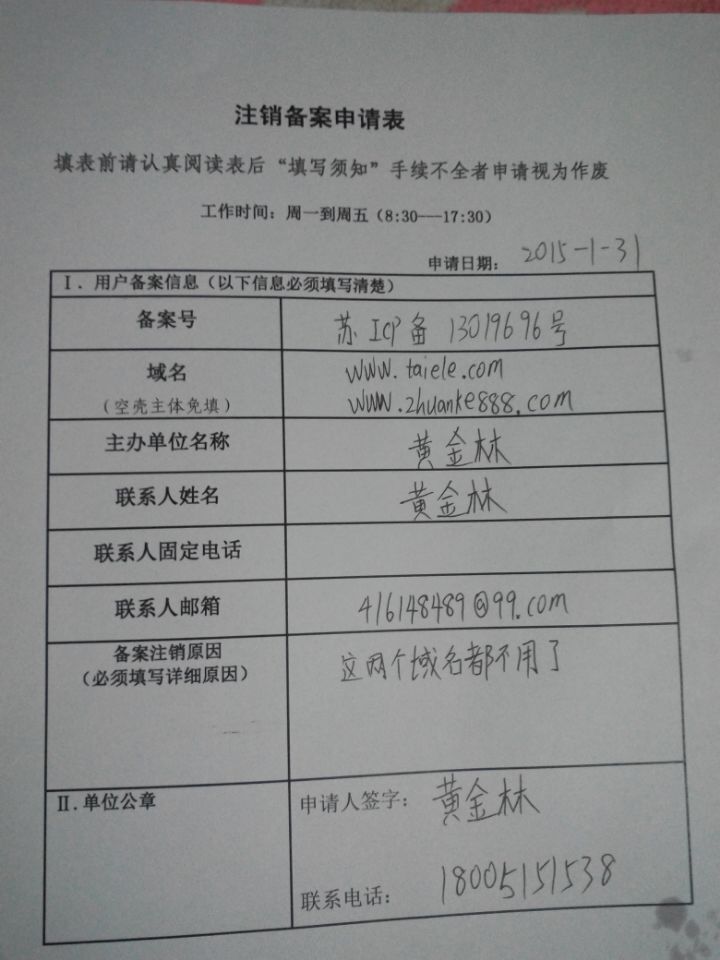 注销备案申请表
填表前请认真阅读表后“填写须知”手续不全者申请视为作废
工作时间：周一到周五（8:30---17:30）
申请日期： 2015-1-31
Ⅰ. 用户备案信息（以下信息必须填写清楚）
备案号 苏ICP备 13019696号
域名 www.taiele.com
（空壳主体免填） www.zhuanke888.com
主办单位名称 黄金林
联系人姓名 黄金林
联系人固定电话
联系人邮箱 416148489@qq.com
备案注销原因 这两个域名都不用了
（必须填写详细原因）
Ⅱ. 单位公章 申请人签字： 黄金林
联系电话： 18005151538